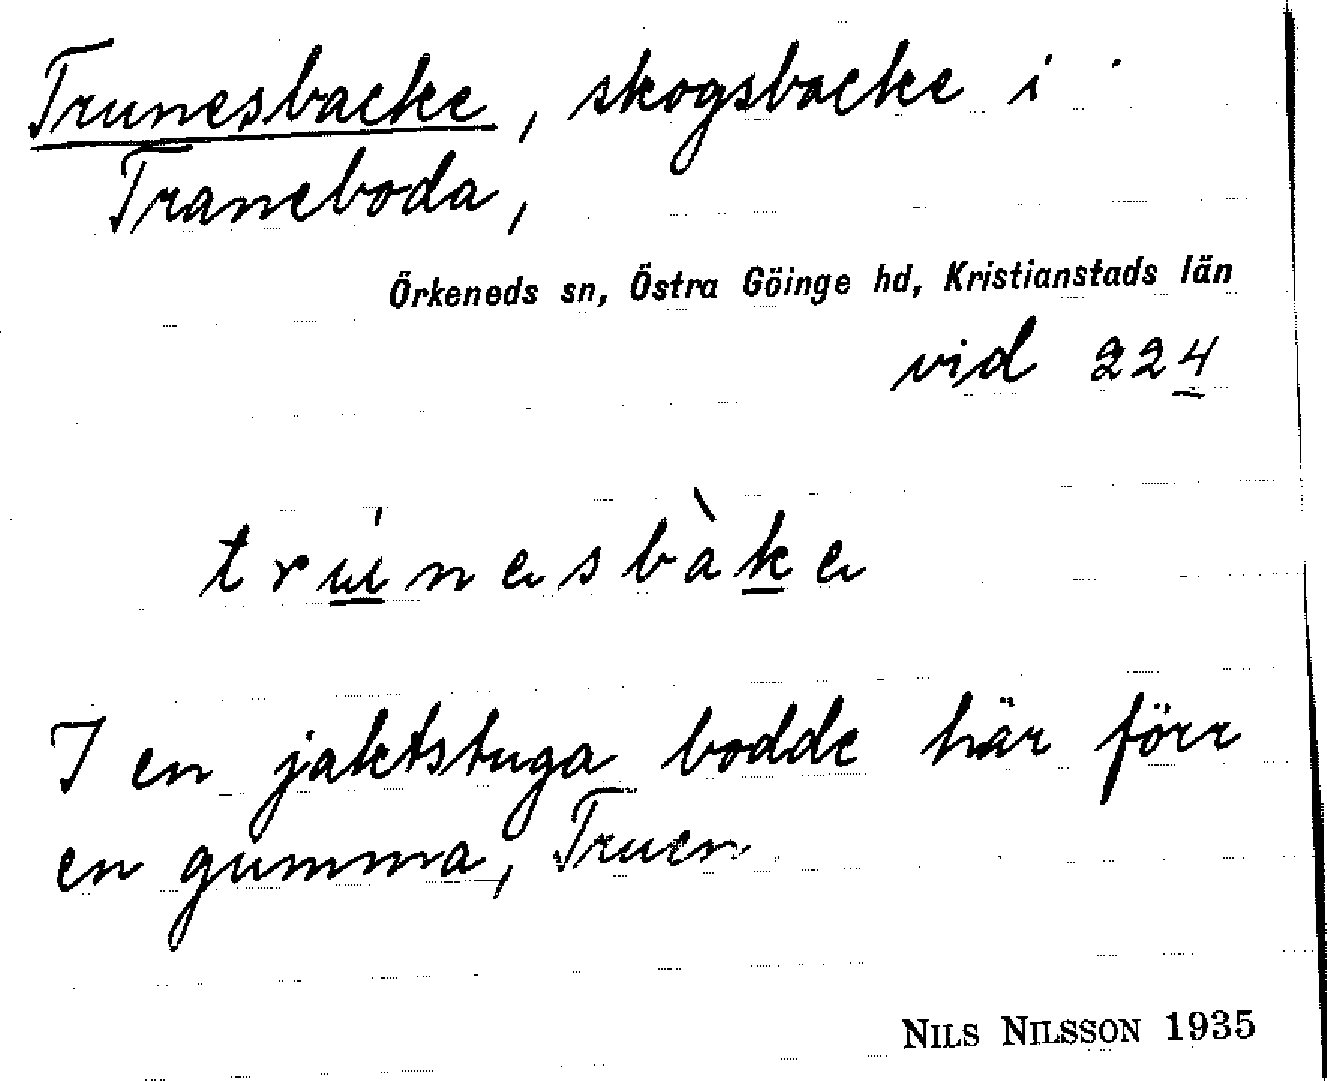 Trunesbacke, skogsbacke i
Traneboda,
Örkeneds sn, Östra Göinge hd, Kristianstads län
vid 224
trúnesbàke
I en jaktstuga bodde här förr
en gumma, Truen
NILS NILSSON 1935